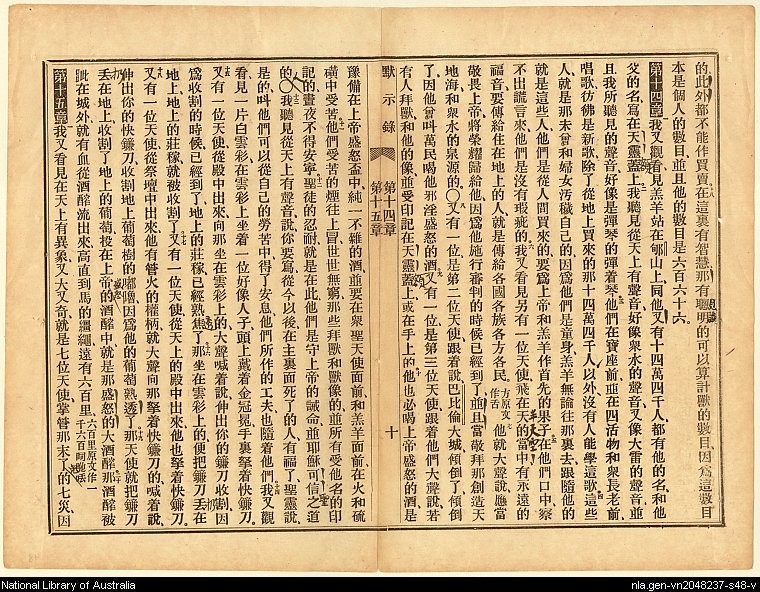 的此外都不能作買賣在這裏有智慧那有聰明的可以算計獸的數目因爲這數目
本是個人的數目並且他的數目是六百六十六
第十四章我又觀看見羔羊站在郇山上同他又有十四萬四千人都有他的名和他
父的名寫在天靈蓋上我聽見從天上有聲音好像衆水的聲音又像大雷的聲音並
且我所聽見的聲音好像是彈琴的彈着琴他們在寶座前並在四活物和衆長老前
唱歌彷彿是新歌除了從地上買來的那十四萬四千人以外沒有人能學這歌這些
人就是那未曾和婦女汚穢自己的因爲他們是童身羔羊無論往那裏去跟隨他的
就是這些人他們是從人間買來的要爲上帝和羔羊作首先的果子在他們口中察
不出謊言來他們是沒有瑕疵的我又看見另有一位天使飛在天的當中有永遠的
福音要傳給住在地上的人就是傳給各國各族各方各民方原文作舌他就大聲說應當
敬畏上帝將榮耀歸給他因爲他施行審判的時候已經到了並且當敬拜那創造天
地海和衆水的泉源的〇又有一位是第二位天使跟着說巴比倫大城傾倒了傾倒
了因他曾叫萬民喝他邪淫盛怒的酒又有一位是第三位天使跟着他們大聲說若
有人拜獸和他的像並受印記在天靈蓋上或在手上的他也必喝上帝盛怒的酒是
默示錄
第十四章
第十五章
十
豫備在上帝盛怒盃中純一不雜的酒並要在衆聖天使面前和羔羊面前在火和硫
磺中受苦他們受苦的煙往上冒世世無窮那些拜獸和獸像的並所有受他名的印
記的晝夜不得安寧聖徒的忍耐就是在此他們是守上帝的誡命並耶穌可信之道
的〇我聽見從天上有聲音說你要寫從今以後在主裏面死了的人有福了聖靈說
是的叫他們可以從自己的勞苦中得了安息他們所作的工夫也隨着他們我又觀
看見一片白雲彩在雲彩上坐着一位好像人子頭上戴着金冠冕手裏拏着快鐮刀
又有一位天使從殿中出來向那坐在雲彩上的大聲喊着說伸出你的鐮刀收割因
爲收割的時候已經到了地上的莊稼已經熟焦了那坐在雲彩上的便把鐮刀丟在
地上地上的莊稼就被收割了又有一位天使從天上的殿中出來他也拏着快鐮刀
又有一位天使從祭壇中出來他有管火的權柄就大聲向那拏着快鐮刀的喊着說
伸出你的快鐮刀收割地上葡萄樹的嘟嚕因爲他的葡萄熟透了那天使就把鐮刀
丟在地上收割了地上的葡萄投在上帝的酒醡中就是那盛怒的大酒醡那酒醡被
跐在城外就有血從酒醡流出來高直到馬的韁繩遠有六百里六百里原文作一千六百
第十五章我又看見在天上有異象又大又奇就是七位天使掌管那末了的七災因
National Library of Australia
nla.gen-vn2048237-s48-v